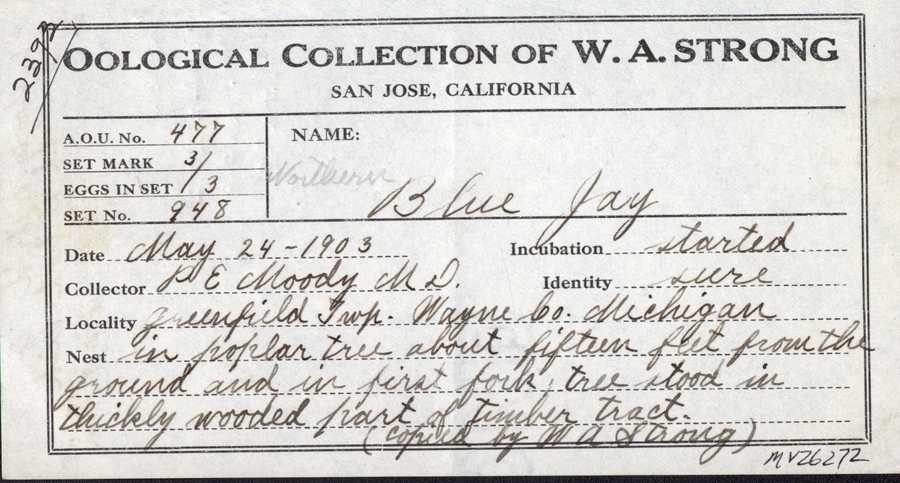 OOLOGICAL COLLECTION OF W. A. STRONG
SAN JOSE, CALIFORNIA
A.O.U. No. 477
NAME:
SET MARK 3/
EGGS IN SET /3
Northern
SET No. 948
Blue Jay
Date May 24-1903 Incubation started
Collector P E Moody M D. Identity sure
Locality Greenfield Twp. Wayne Co. Michigan
Nest in poplar tree about fifteen feet from the
ground and in first fork, tree stood in
thickly wooded part of timber tract.
(copied by W A Strong)
MV26272